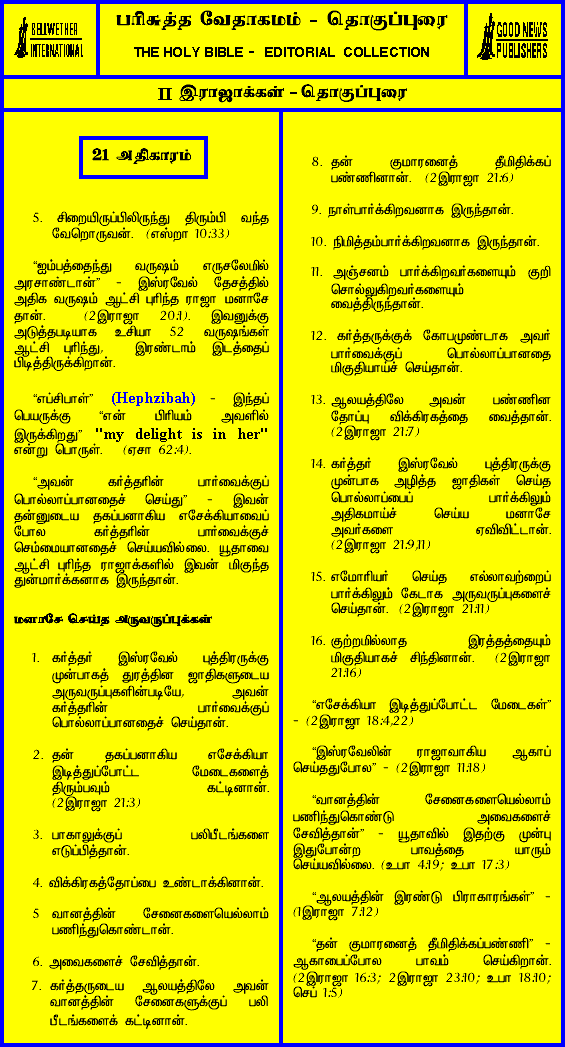 BELLWETHER
INTERNATIONAL
பரிசுத்த வேதாகமம் - தொகுப்புரை
THE HOLY BIBLE - EDITORIAL COLLECTION
GOOD NEWS
PUBLISHERS
II இராஜாக்கள் - தொகுப்புரை
21 அதிகாரம்
5. சிறையிருப்பிலிருந்து திரும்பி வந்த
வேறொருவன். (எஸ்றா 10:33)
“ஐம்பத்தைந்து வருஷம் எருசலேமில்
அரசாண்டான்” - இஸ்ரவேல் தேசத்தில்
அதிக வருஷம் ஆட்சி புரிந்த ராஜா மனாசே
தான். (2இராஜா 20:1). இவனுக்கு
அடுத்தபடியாக உசியா 52 வருஷங்கள்
ஆட்சி புரிந்து, இரண்டாம் இடத்தைப்
பிடித்திருக்கிறான்.
“எப்சிபாள்” (Hephzibah) - இந்தப்
பெயருக்கு “என் பிரியம் அவளில்
இருக்கிறது” "my delight is in her"
என்று பொருள். (ஏசா 62:4).
“அவன் கர்த்தரின் பார்வைக்குப்
பொல்லாப்பானதைச் செய்து” - இவன்
தன்னுடைய தகப்பனாகிய எசேக்கியாவைப்
போல கர்த்தரின் பார்வைக்குச்
செம்மையானதைச் செய்யவில்லை. யூதாவை
ஆட்சி புரிந்த ராஜாக்களில் இவன் மிகுந்த
துன்மார்க்கனாக இருந்தான்.
மனாசே செய்த அருவருப்புக்கள்
1. கர்த்தர் இஸ்ரவேல் புத்திரருக்கு
முன்பாகத் துரத்தின ஜாதிகளுடைய
அருவருப்புகளின்படியே, அவன்
கர்த்தரின் பார்வைக்குப்
பொல்லாப்பானதைச் செய்தான்.
2. தன் தகப்பனாகிய எசேக்கியா
இடித்துப்போட்ட மேடைகளைத்
திரும்பவும் கட்டினான்.
(2இராஜா 21:3)
3. பாகாலுக்குப் பலிபீடங்களை
எடுப்பித்தான்.
4. விக்கிரகத்தோப்பை உண்டாக்கினான்.
5 வானத்தின் சேனைகளையெல்லாம்
பணிந்துகொண்டான்.
6. அவைகளைச் சேவித்தான்.
7. கர்த்தருடைய ஆலயத்திலே அவன்
வானத்தின் சேனைகளுக்குப் பலி
பீடங்களைக் கட்டினான்.
8. தன் குமாரனைத் தீமிதிக்கப்
பண்ணினான். (2இராஜா 21:6)
9. நாள்பார்க்கிறவனாக இருந்தான்.
10. நிமித்தம்பார்க்கிறவனாக இருந்தான்.
11. அஞ்சனம் பார்க்கிறவர்களையும் குறி
சொல்லுகிறவர்களையும்
வைத்திருந்தான்.
12. கர்த்தருக்குக் கோபமுண்டாக அவர்
பார்வைக்குப் பொல்லாப்பானதை
மிகுதியாய்ச் செய்தான்.
13. ஆலயத்திலே அவன் பண்ணின
தோப்பு விக்கிரகத்தை வைத்தான்.
(2இராஜா 21:7)
14. கர்த்தர் இஸ்ரவேல் புத்திரருக்கு
முன்பாக அழித்த ஜாதிகள் செய்த
பொல்லாப்பைப் பார்க்கிலும்
அதிகமாய்ச் செய்ய மனாசே
அவர்களை ஏவிவிட்டான்.
(2இராஜா 21:9,11)
15. எமோரியர் செய்த எல்லாவற்றைப்
பார்க்கிலும் கேடாக அருவருப்புகளைச்
செய்தான். (2இராஜா 21:11)
16. குற்றமில்லாத இரத்தத்தையும்
மிகுதியாகச் சிந்தினான். (2இராஜா
21:16)
“எசேக்கியா இடித்துப்போட்ட மேடைகள்”
- (2இராஜா 18:4,22)
“இஸ்ரவேலின் ராஜாவாகிய ஆகாப்
செய்ததுபோல” - (2இராஜா 11:18)
“வானத்தின் சேனைகளையெல்லாம்
பணிந்துகொண்டு அவைகளைச்
சேவித்தான்” - யூதாவில் இதற்கு முன்பு
இதுபோன்ற பாவத்தை யாரும்
செய்யவில்லை. (உபா 4:19; உபா 17:3)
“ஆலயத்தின் இரண்டு பிராகாரங்கள்” -
(1இராஜா 7:12)
“தன் குமாரனைத் தீமிதிக்கப்பண்ணி” -
ஆகாபைப்போல பாவம் செய்கிறான்.
(2இராஜா 16:3; 2இராஜா 23:10; உபா 18:10;
செப் 1:5)